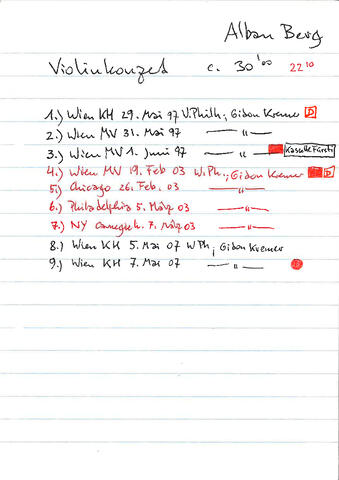 Alban Berg
Violinkonzert c. 30'00 22 10
1.) Wien KH 29. Mai 97 V.Philh.; Gidon Kremer D
2.) Wien MV 31. Mai 97 —— " ——
3.) Wien MV 1. Juni 97 —— " ——
4.) Wien MV 19. Feb 03 W.Ph.; Gidon Kremer D
5.) Chicago 26. Feb. 03 —— " ——
6.) Philadelphia 5. März 03 —— " ——
7.) NY Carnegie h. 7. März 03 —— " ——
8.) Wien KH 5. Mai 07 WPh; Gidon Kremer
9.) Wien KH 7. Mai 07 —— " ——